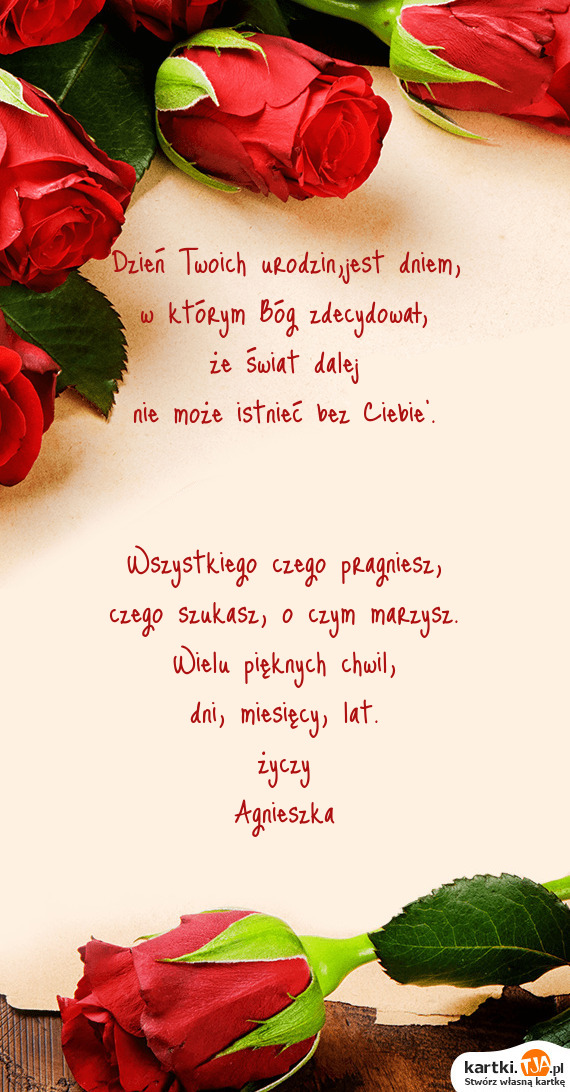 Dzień Twoich urodzin,jest dniem,
w którym Bóg zdecydował,
że świat dalej
nie może istnieć bez Ciebie'.
Wszystkiego czego pragniesz,
czego szukasz, o czym marzysz.
Wielu pięknych chwil,
dni, miesięcy, lat.
życzy
Agnieszka
kartki.TJA.pl
Stwórz własną kartkę